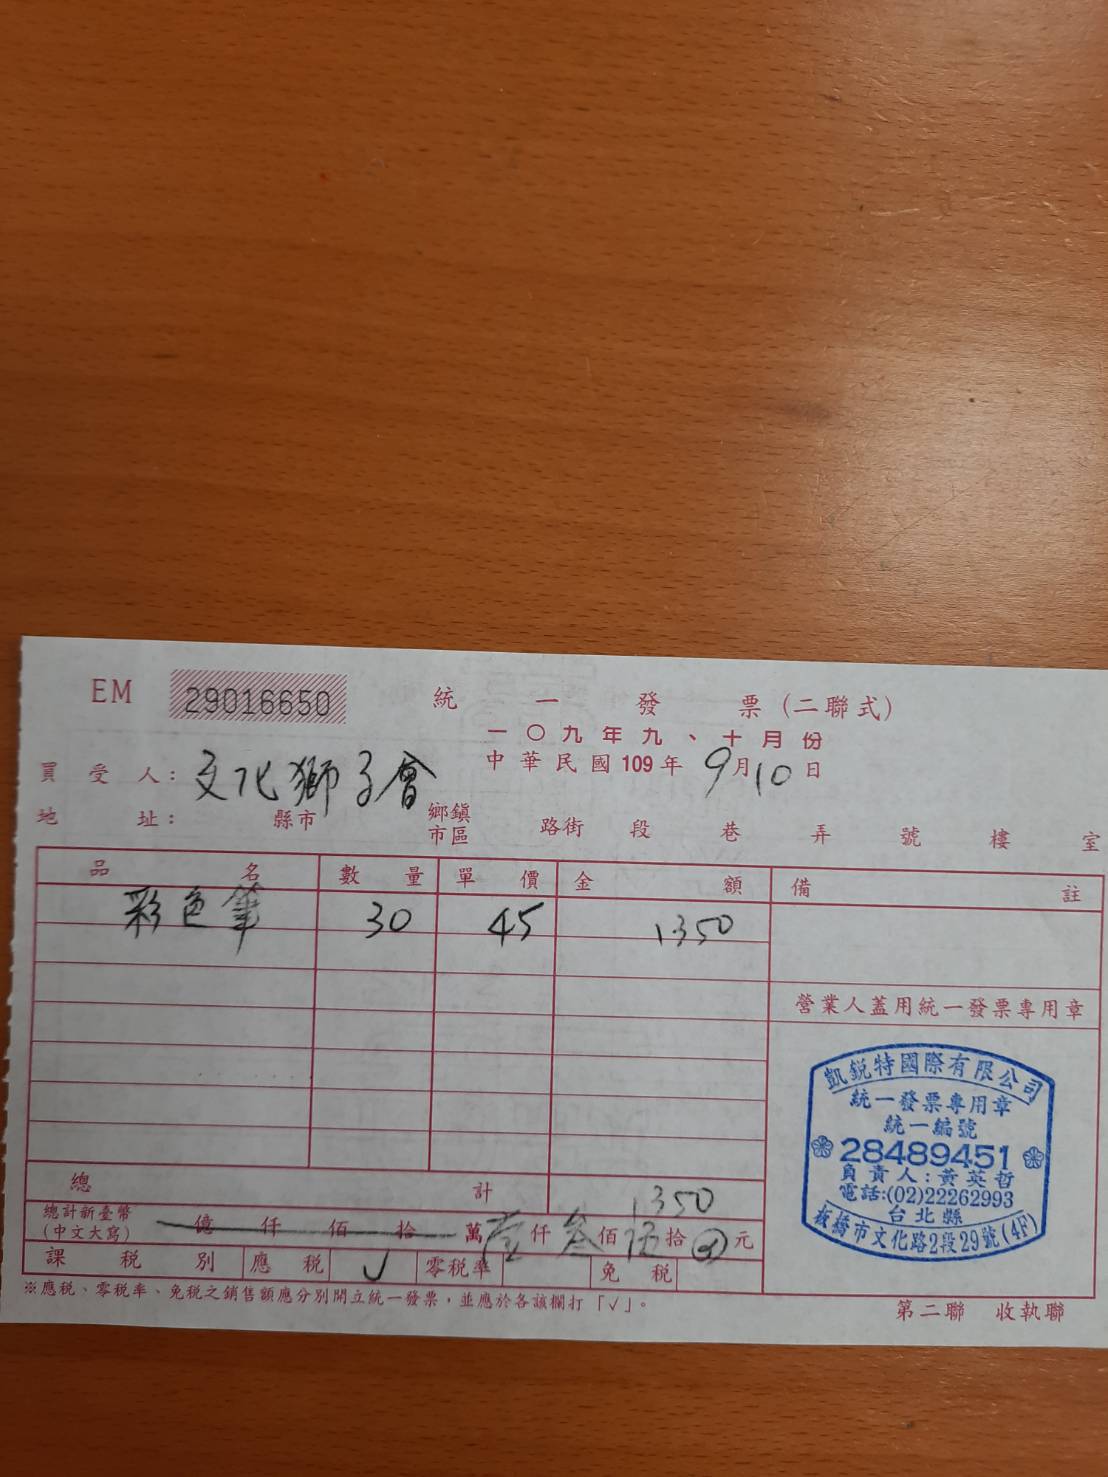 EM 29016650 統一發票(二聯式)
一〇九年九、十月份
中華民國109年9月10日
買受人：文化獅子會
地址： 縣市 鄉鎮市區 路街 段 巷 弄 號 樓 室
品名 數量 單價 金額 備註
彩色筆 30 45 1350
營業人蓋用統一發票專用章
凱銳特國際有限公司
統一發票專用章
統一編號
28489451
負責人:黃英哲
電話:(02)22262993
台北縣
板橋市文化路2段29號(4F)
總計 1350
總計新臺幣(中文大寫) 億仟佰拾萬壹仟叁佰伍拾元
課稅別 應稅 ✓ 零稅率 免稅
※應稅、零稅率、免稅之銷售額應分別開立統一發票，並應於各該欄打「✓」。
第二聯 收執聯